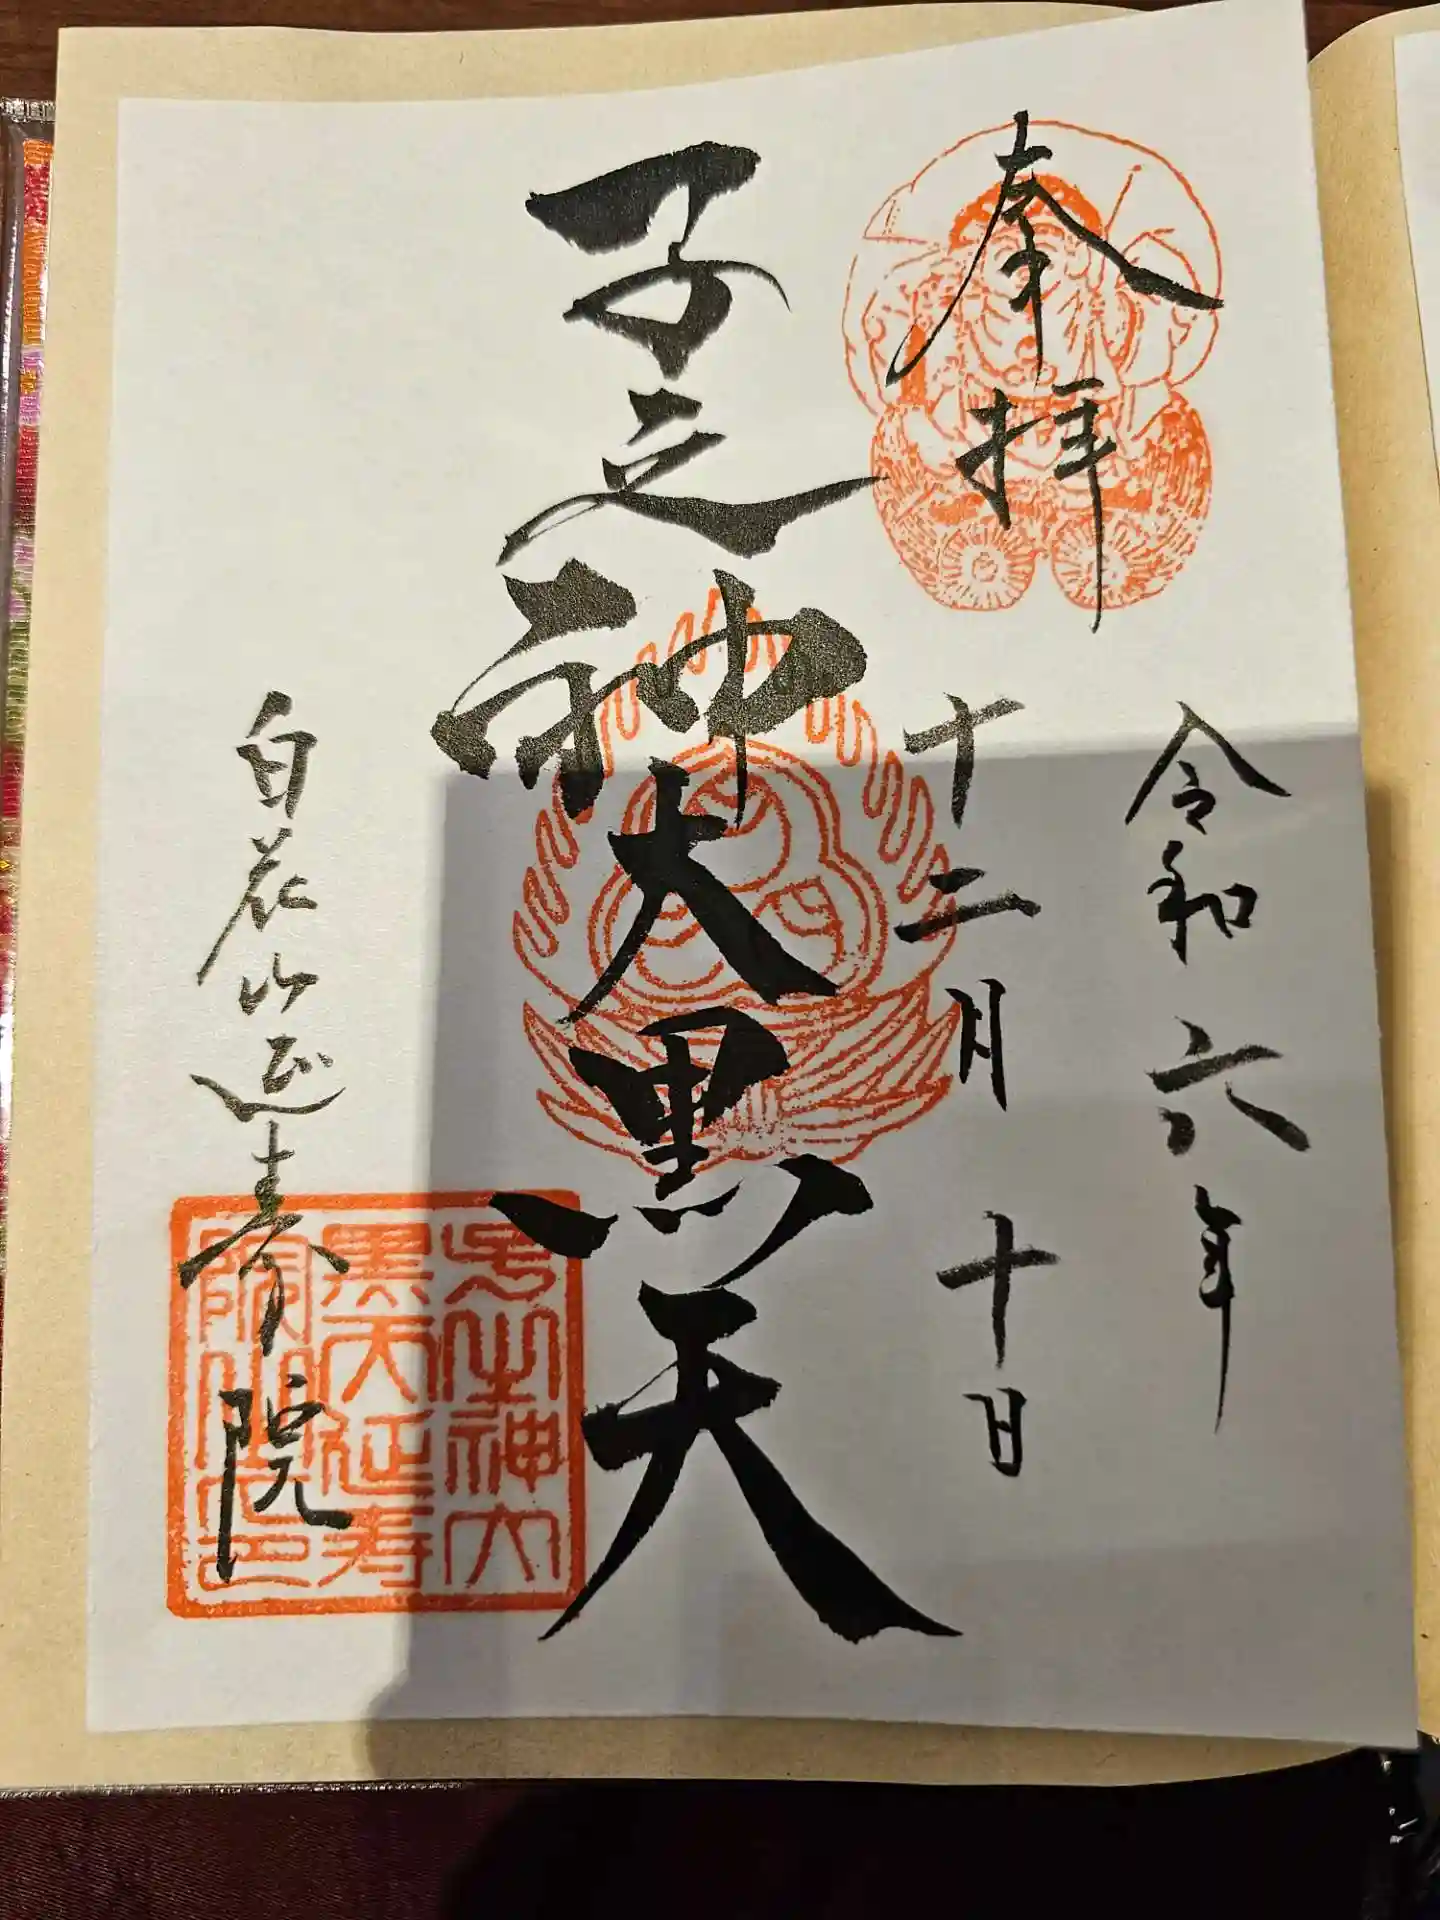 奉拝
令和六年
十二月十日
子之神大黒天
白花山延寿院
子之神大
黒天延寿
院印